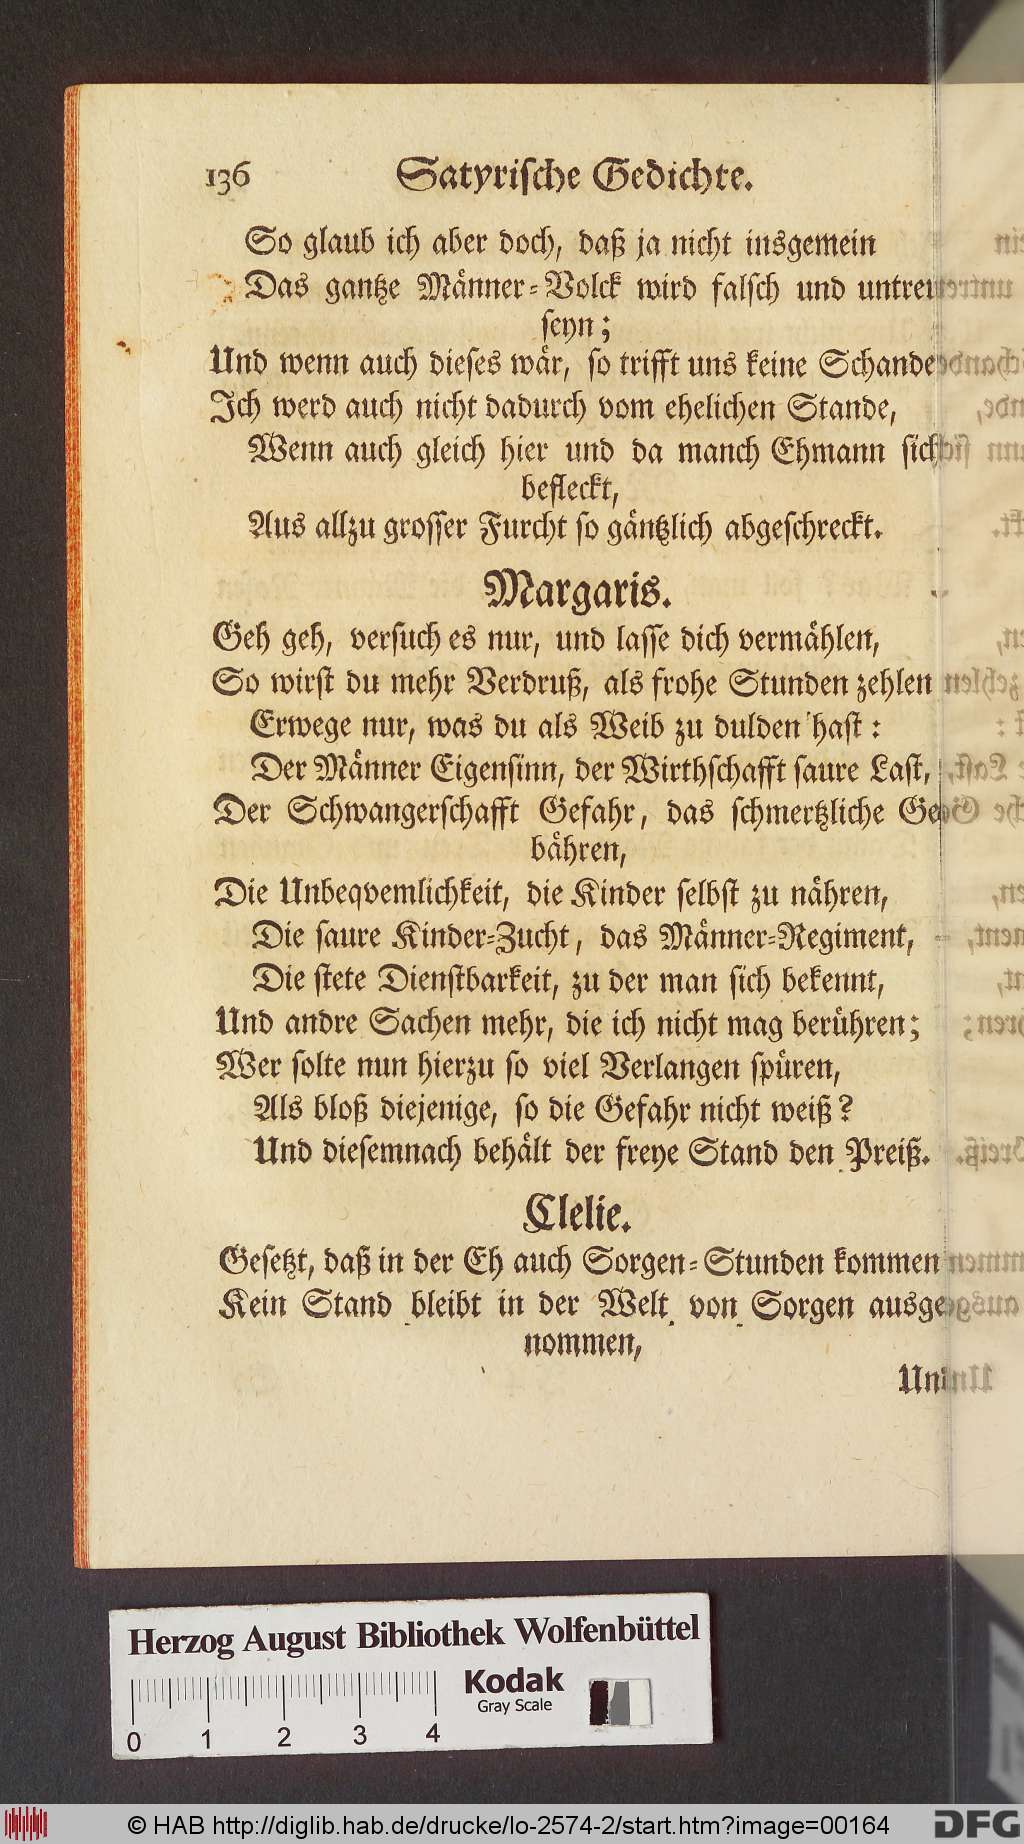 136 Satyrische Gedichte.
So glaub ich aber doch, daß ja nicht insgemein
Das gantze Männer-Volck wird falsch und untreu
seyn;
Und wenn auch dieses wär, so trifft uns keine Schande
Ich werd auch nicht dadurch vom ehelichen Stande,
Wenn auch gleich hier und da manch Ehmann sich
befleckt,
Aus allzu grosser Furcht so gäntzlich abgeschreckt.
Margaris.
Geh geh, versuch es nur, und lasse dich vermählen,
So wirst du mehr Verdruß, als frohe Stunden zehlen
Erwege nur, was du als Weib zu dulden hast:
Der Männer Eigensinn, der Wirthschafft saure Last,
Der Schwangerschafft Gefahr, das schmertzliche Ge
bähren,
Die Unbeqvemlichkeit, die Kinder selbst zu nähren,
Die saure Kinder-Zucht, das Männer-Regiment,
Die stete Dienstbarkeit, zu der man sich bekennt,
Und andre Sachen mehr, die ich nicht mag berühren;
Wer solte nun hierzu so viel Verlangen spüren,
Als bloß diejenige, so die Gefahr nicht weiß?
Und diesemnach behält der freye Stand den Preiß.
Clelie.
Gesetzt, daß in der Eh auch Sorgen-Stunden kommen
Kein Stand bleibt in der Welt von Sorgen ausge
nommen,
Herzog August Bibliothek Wolfenbüttel
Kodak
Gray Scale
0 1 2 3 4
© HAB http://diglib.hab.de/drucke/lo-2574-2/start.htm?image=00164
DFG